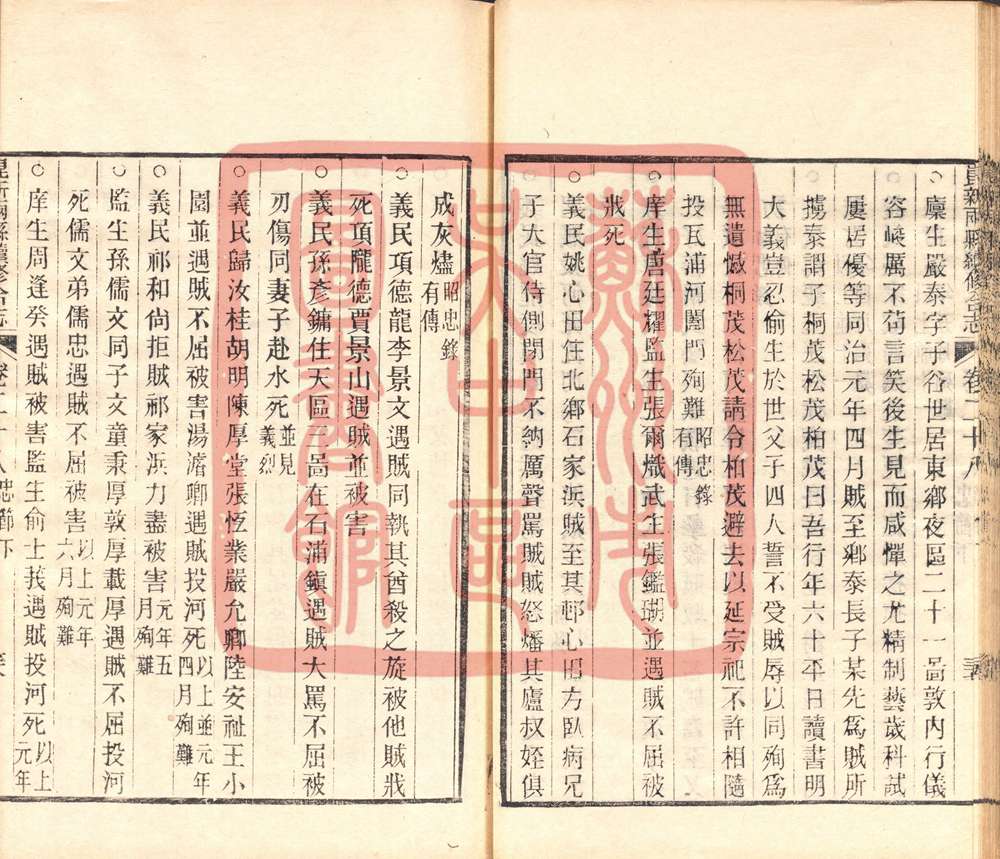 崑新兩縣續修合志 卷二十八
○廩生嚴泰字子谷世居東鄉夜區二十一啚敦内行儀
容峻厲不苟言笑後生見而咸憚之尤精制藝歲科試
屢居優等同治元年四月賊至鄉泰長子某先爲賊所
擄泰謂子桐茂松茂柏茂曰吾行年六十平日讀書明
大義豈忍偷生於世父子四人誓不受賊辱以同殉爲
無遺憾桐茂松茂請令柏茂避去以延宗祀不許相隨
投瓦浦河闔門殉難昭忠錄有傳
○庠生唐廷耀監生張爾熾武生張鑑瑚並遇賊不屈被
戕死
○義民姚心田住北鄉石家浜賊至其邨心田方臥病兄
子大官侍側閉門不納厲聲罵賊賊怒燔其廬叔姪俱
成灰燼昭忠錄有傳
○義民項德龍李景文遇賊同執其酋殺之旋被他賊戕
死項隴德賈景山遇賊並被害
○義民孫彥鏞住天區三啚在石浦鎮遇賊大罵不屈被
刃傷同妻子赴水死並見義烈
○義民歸汝桂胡明陳厚堂張恆業嚴允卿陸安祉王小
園並遇賊不屈被害湯濬卿遇賊投河死以上並元年四月殉難
○義民祁和尚拒賊祁家浜力盡被害元年五月殉難
○監生孫儒文同子文童秉厚敦厚載厚遇賊不屈投河
死儒文弟儒忠遇賊不屈被害以上元年六月殉難
○庠生周逢癸遇賊被害監生俞士莪遇賊投河死以上元年
崑新兩縣續修合志 卷二十八 忠節下
蘇州市
吳中區
圖書館